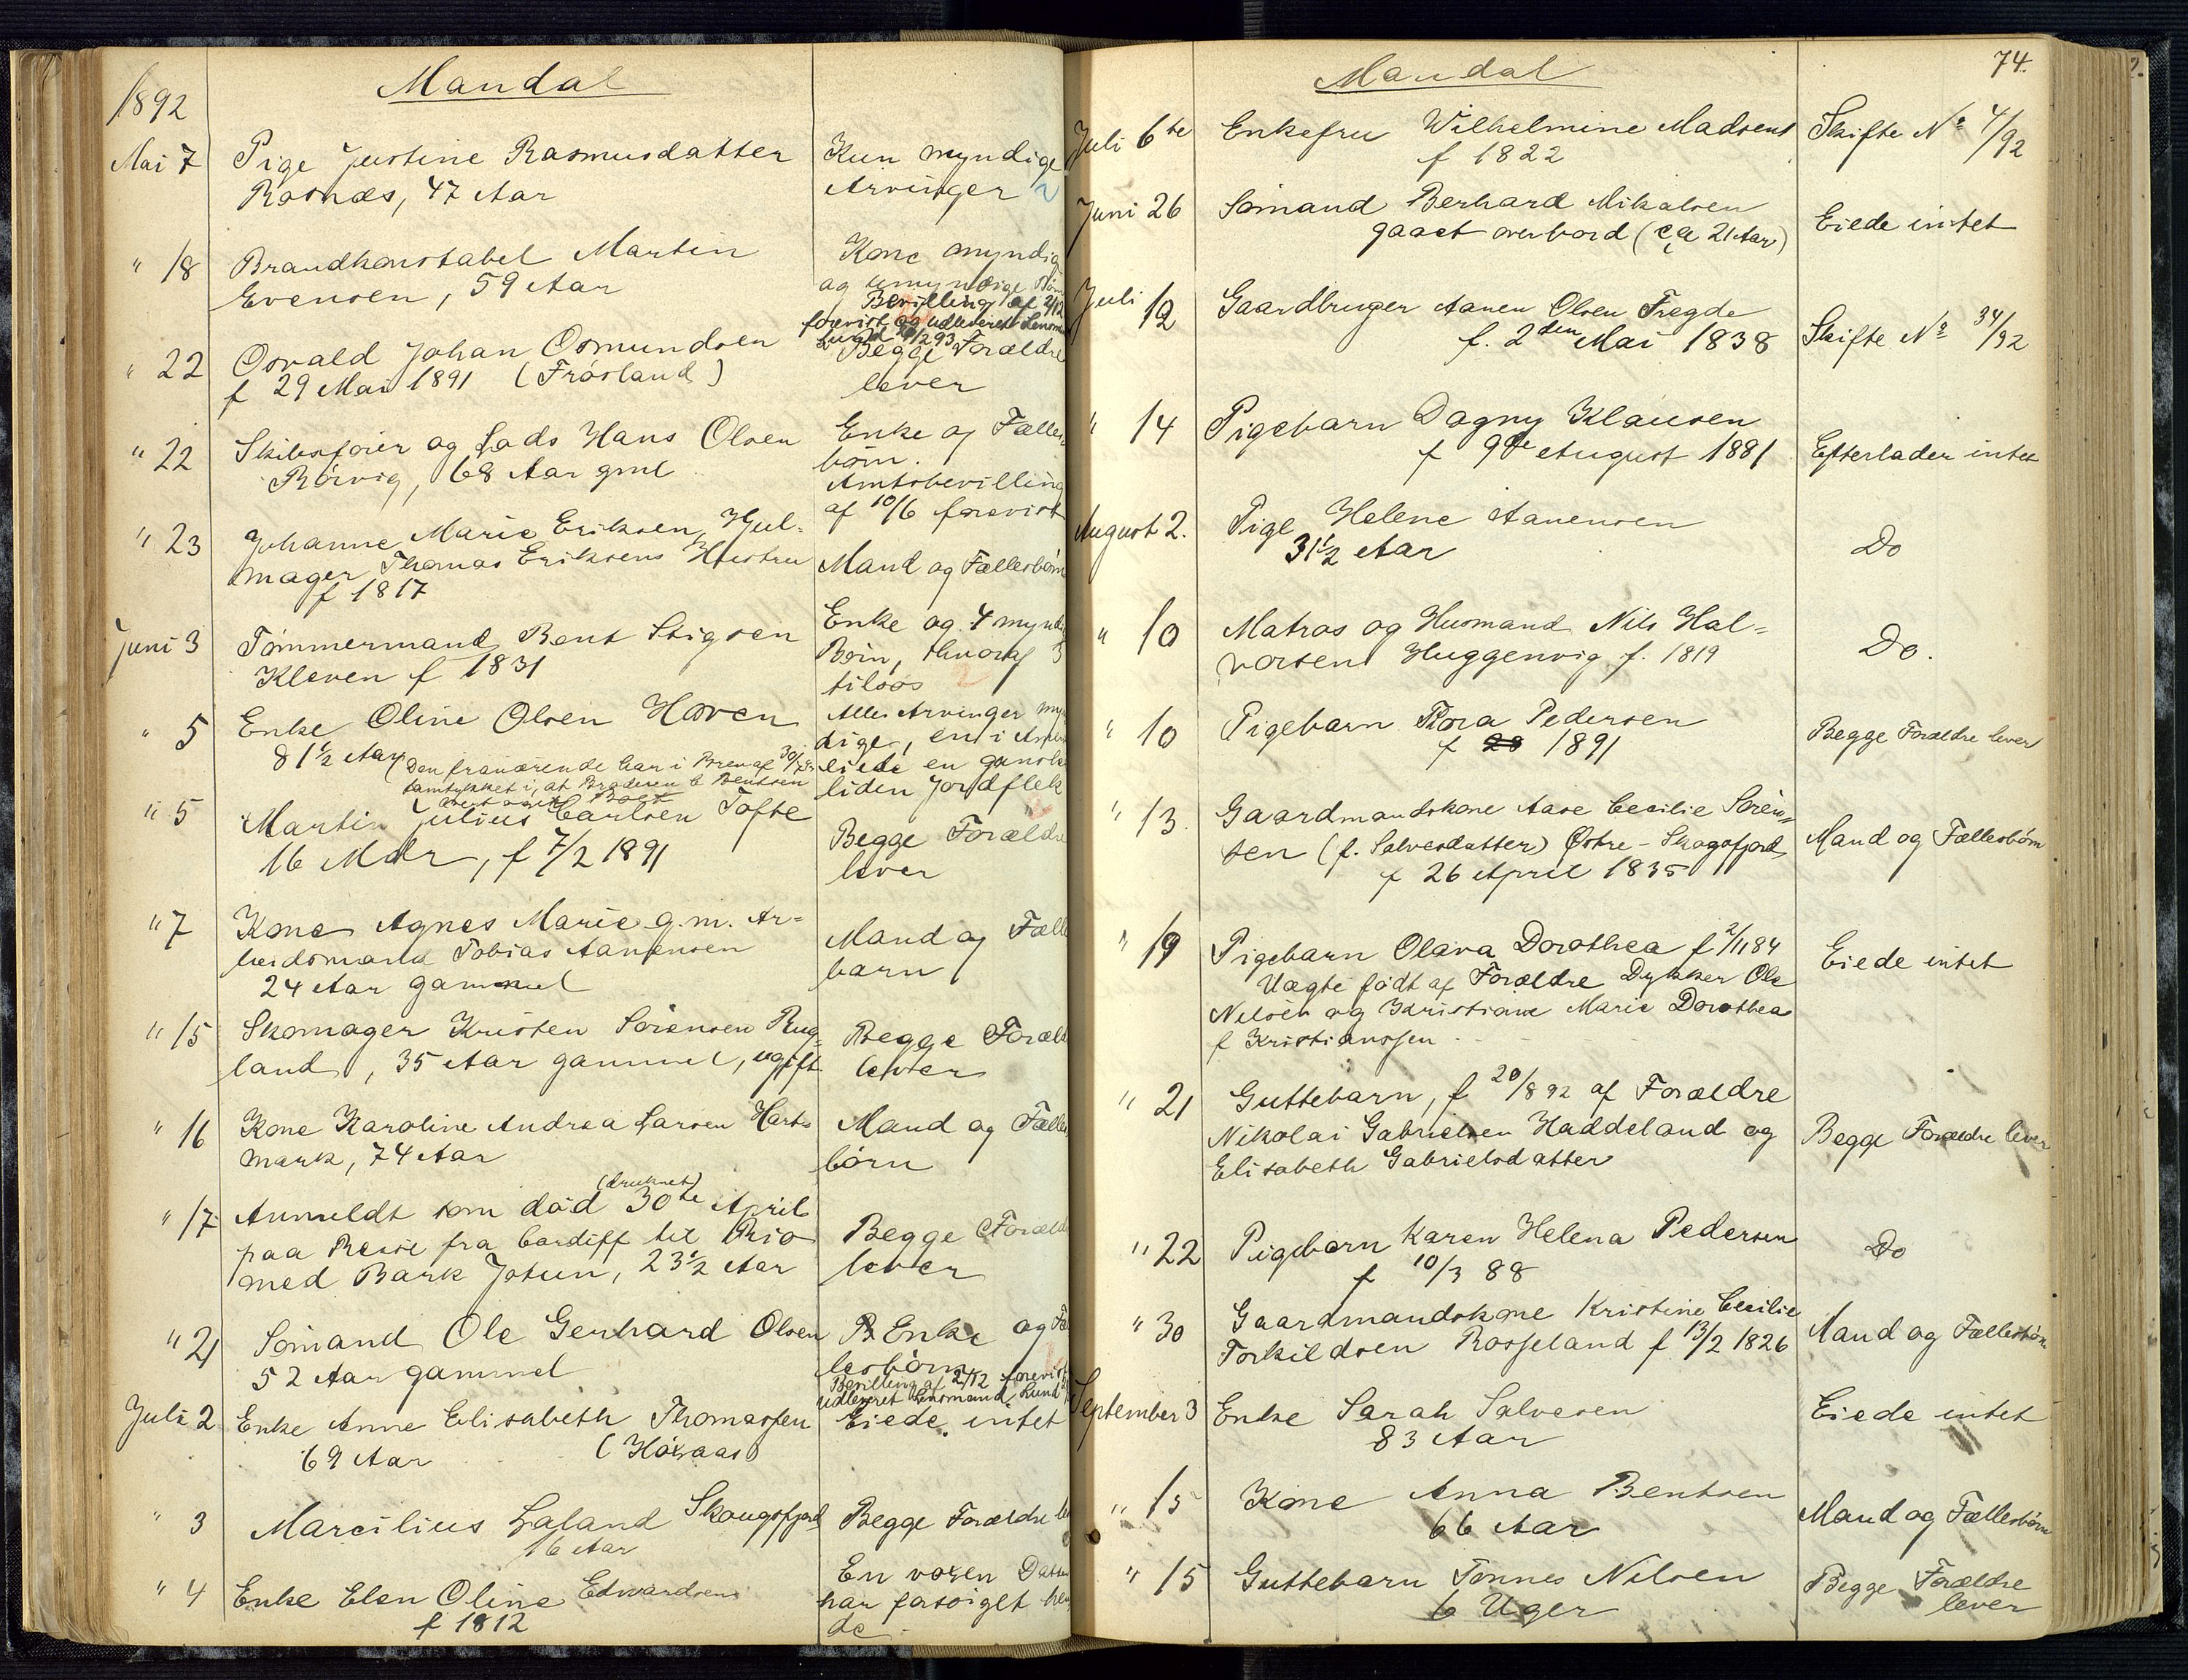 1892
Mandal
Mai 7 Pige Justine Rasmusdatter Kun myndige
Rosnæs, 47 Aar Arvinger
" 18 Brandkonstabel Martin Kone myndig
Evensen, 59 Aar og umyndige
Bevilling af 2/12
forevist og udleveret
" 22 Osvald Johan Osmundsen Begge Forældre
f 29 Mai 1891 (Frøsland) lever
" 22 Skibsfører og Lods Hans Olsen Enke og Fælles
Rørvig, 68 Aar gml børn.
Amtsbevilling
af 10/6 forevist
" 23 Johanne Marie Eriksen, Hjul-
mager Thomas Eriksens Hustru Mand og Fællesbørn
f 1817
Juni 3 Tømmermand Bent Stigsen Enke og 4 myndi
Kleven f 1831 Børn, hvoraf 3
tilsøs
" 5 Enke Oline Olsen Haven Alle Arvinger myn
81 1/2 Aar dige, en i
(Den fraværende har i Brev af 30/7 eiede en ganske
samtykket i, at Broderen B Bentsen liden Jordflek
" 5 Martin Julius Carlsen Tofte Begge Forældre
16 Mdr, f 7/2 1891 lever
" 7 Kone Agnes Marie g.m. Ar-
beidsmand Tobias Aanensen Mand og Fælle
24 Aar gammel barn
" 15 Skomager Kristen Sørensen Rug- Begge Foræld
land, 35 Aar gammel, ugift lever
" 16 Kone Karoline Andrea Larsen Harts Mand og Fælles
mark, 74 Aar børn
(druknet)
" 17 Anmeldt som død 30te April
paa Reise fra Cardiff til Rio Begge Foræld
med Bark Jotun, 23 1/2 Aar lever
" 21 Sømand Ole Gerhard Olsen Enke og Fæ
52 Aar gammel lesbørn
Bevilling af 2/12 forevist
udleveret Lensmand Lund
Juli 2 Enke Anne Elisabeth Thomassen Eiede intet
69 Aar
" 3 Marcilius Laland Skougsfjord Begge Forældre le
16 Aar
" 4 Enke Elen Oline Edwardsen En voxen Datter
f 1812 har forsørget hen
de.
74.
Mandal
Juli 6te Enkefru Wilhelmine Madsen Skifte No 4/92
f 1822
Juni 26 Sømand Berhard Mikalsen Eiede intet
gaaet overbord (ca 21 Aar)
Juli 12 Gaardbruger Aanen Olsen Tregde
f. 2den Mai 1838 Skifte No 34/92
" 14 Pigebarn Dagny Klausen
f 9de August 1881 Efterlader intet
August 2. Pige Helene Aanensen
31 1/2 Aar Do
" 10 Matros og Husmand Nils Hal-
vorsen Huggenvig f. 1819 Do.
" 10 Pigebarn Thora Pedersen Begge Forældre lever
f 28 1891
" 13. Gaardmandskone Aase Cecilie Søren-
sen (f. Salvesdatter) Østre-Skogsfjord Mand og Fællesbørn
f 26 April 1835
" 19 Pigebarn Olava Dorothea f 2/11 84 Eiede intet
Uægte født af Forældre Dykker Ole
Nilsen og Kristiane Marie Dorothea
f Kristianssen
" 21 Guttebarn, f 20/8 92 af Forældre
Nikolai Gabrielsen Haddeland og Begge Forældre lever
Elisabeth Gabrielsdatter
" 22 Pigebarn Karen Helena Pedersen Do
f 10/3 88
" 30 Gaardmandskone Kristine Cecilie
Torkildsen Rosseland f 13/2 1826 Mand og Fællesbørn
September 3 Enke Sarah Salvesen Eiede intet
83 Aar
" 15 Kone Anna Bentsen Mand og Fællesbørn
66 Aar
" 15 Guttebarn Tønnes Nilsen Begge Forældre
6 Uger lever